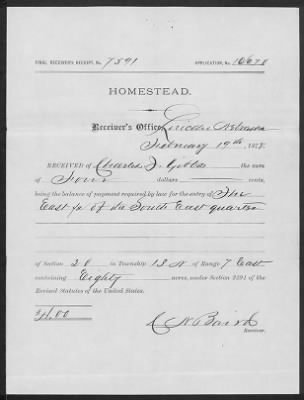 FINAL RECEIVER'S RECEIPT, No. 7591 APPLICATION, No. 10671
HOMESTEAD.
Receiver's Office, Lincoln Nebraska
February 19th, 1878.
RECEIVED of Charles J. Gibbs the sum
of Four dollars cents,
being the balance of payment required by law for the entry of The
East ½ of the South East quarter
of Section 20 in Township 13 N of Range 7 East
containing Eighty acres, under Section 2291 of the
Revised Statutes of the United States.
$4.00
Receiver.